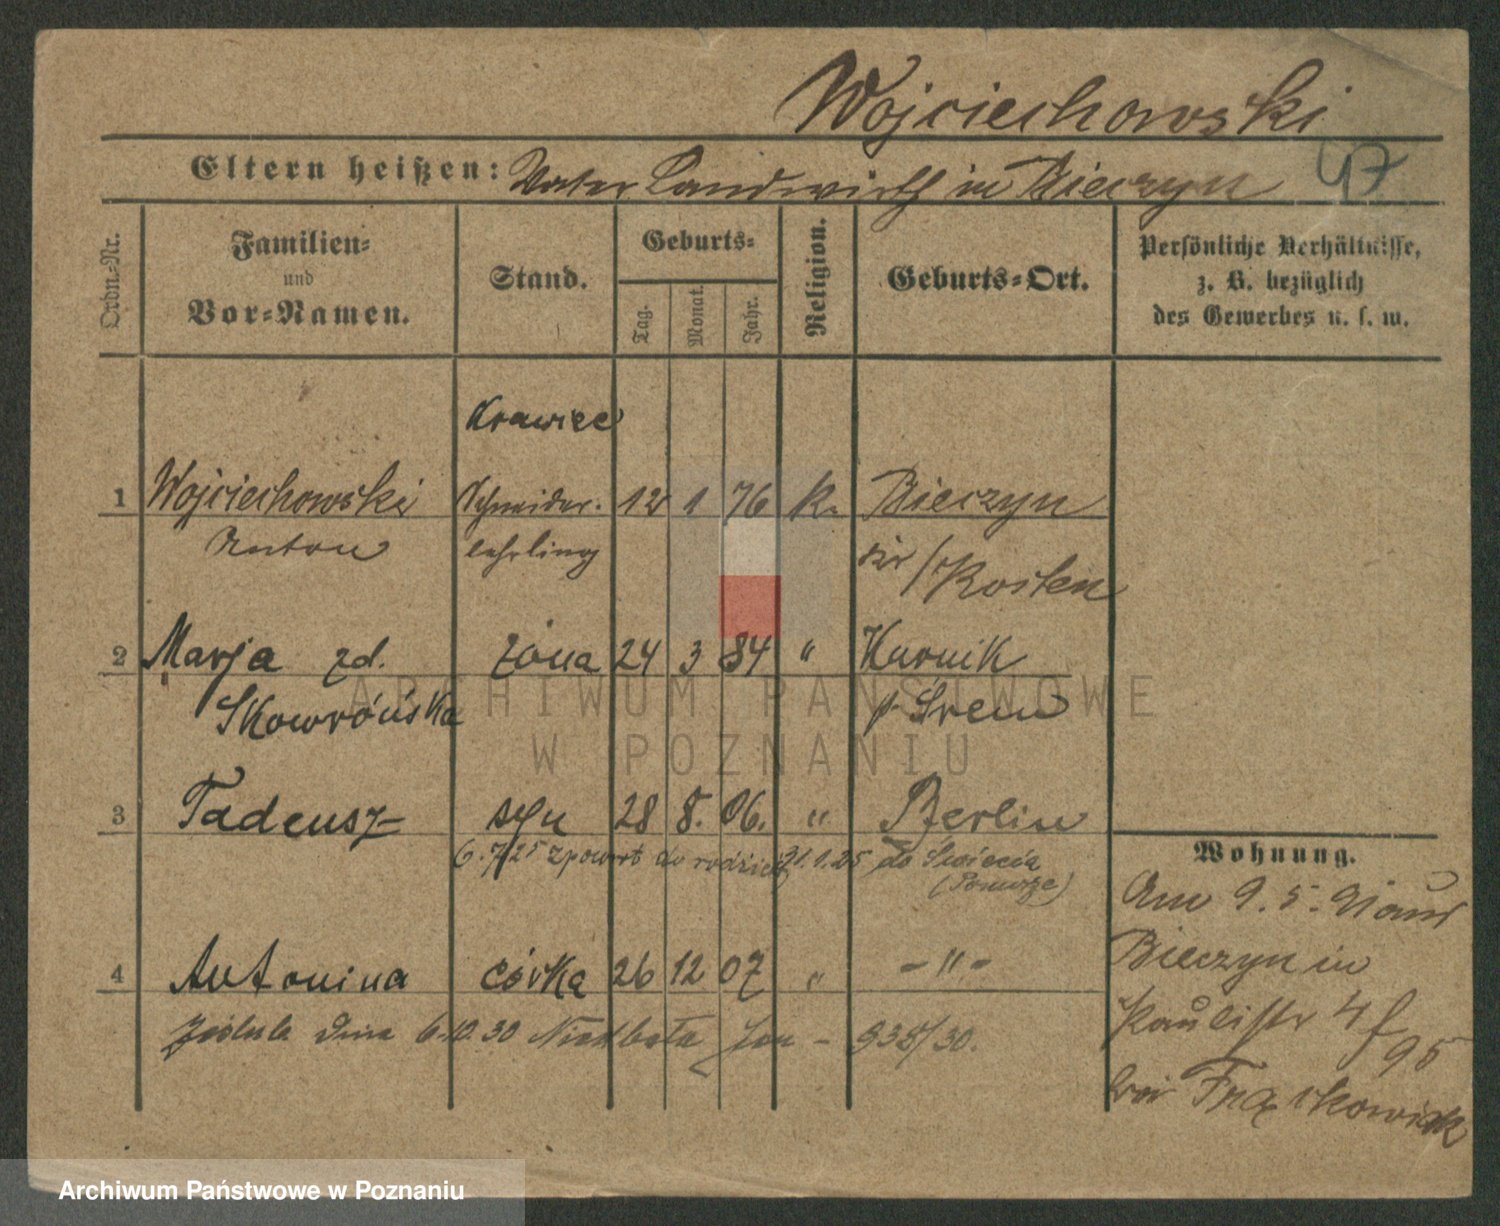 Wojciechowski
Eltern heißen: Vater Landwirth in Bieczyn 47
Ordn-Nr. Familien- und Vor-Namen. Stand. Geburts- Tag. Monat. Jahr. Religion. Geburts-Ort. Persönliche Verhältnisse, z. B. bezüglich des Gewerbes u. s. w.
Krawiec
1 Wojciechowski Schneider- 12 1 76 K. Bieczyn
Anton lehrling Kr/Kosten
2 Marja zd. żona 24 3 84 " Kurnik
Skowrońska p. Śrem
3 Tadeusz syn 28 8. 06. " Berlin
6.7/25 zpowrt do rodzicy 31.1.25 do Świecia
(Pomorze)
Wohnung.
Am 9.5.91 aus
4 Antonina córka 26 12 07 " -"-
Bieczyn in
zaślub. dnia 6.10.30 Niedbała Jan - 935/30.
Paulistr 4 f
95
bei Frąckowiak
ARCHIWUM PAŃSTWOWE
W POZNANIU
Archiwum Państwowe w Poznaniu